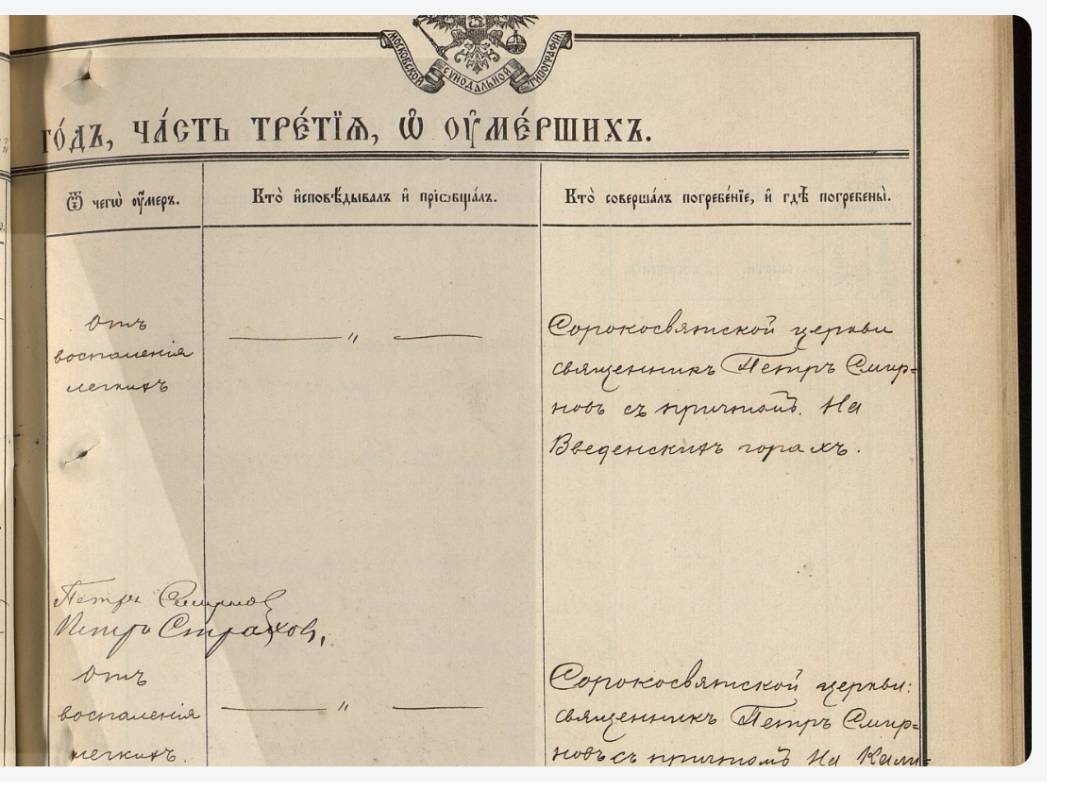 МОСКОВСКОЙ СѴНОДАЛЬНОЙ ТИПОГРАФИИ
го́дъ, ча́сть тре́тїѧ, ѡ҆ ᲂу҆ме́ршихъ.
Ѿ чегѡ̀ ᲂу҆́меръ.
Кто̀ и҆сповѣ́дывалъ и҆ прїѡбща́лъ.
Кто̀ соверша́лъ погребе́нїе, и҆ гдѣ̀ погребены̀.
Отъ
воспаленія
легкихъ
— " —
Сорокосвятской церкви
священникъ Петръ Смир=
новъ съ причтомъ. На
Введенскихъ горахъ.
Петръ Смирнов
Петръ Страхов,
Отъ
воспаленія
легкихъ.
— " —
Сорокосвятской церкви:
священникъ Петръ Смир=
новъ съ причтомъ На Кали=